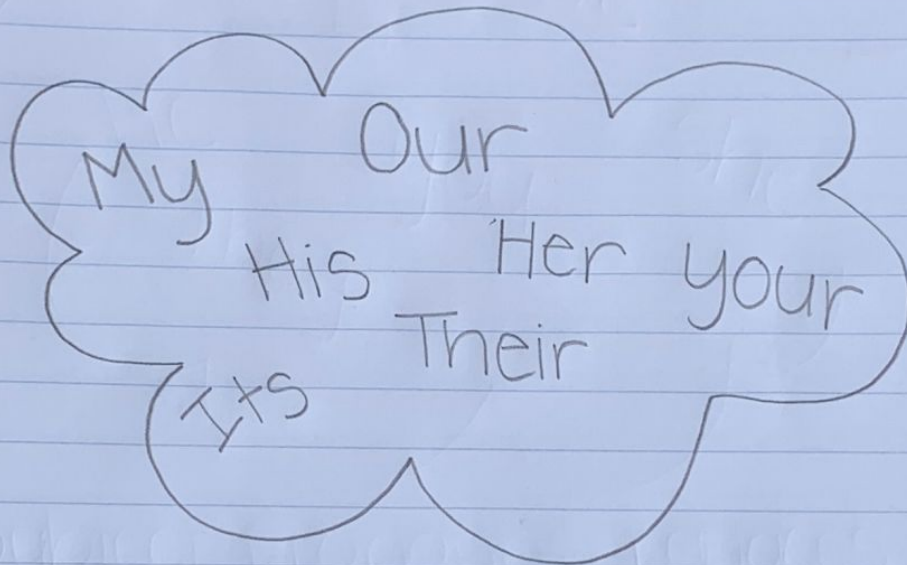 Our
My
His Her your
Their
Its